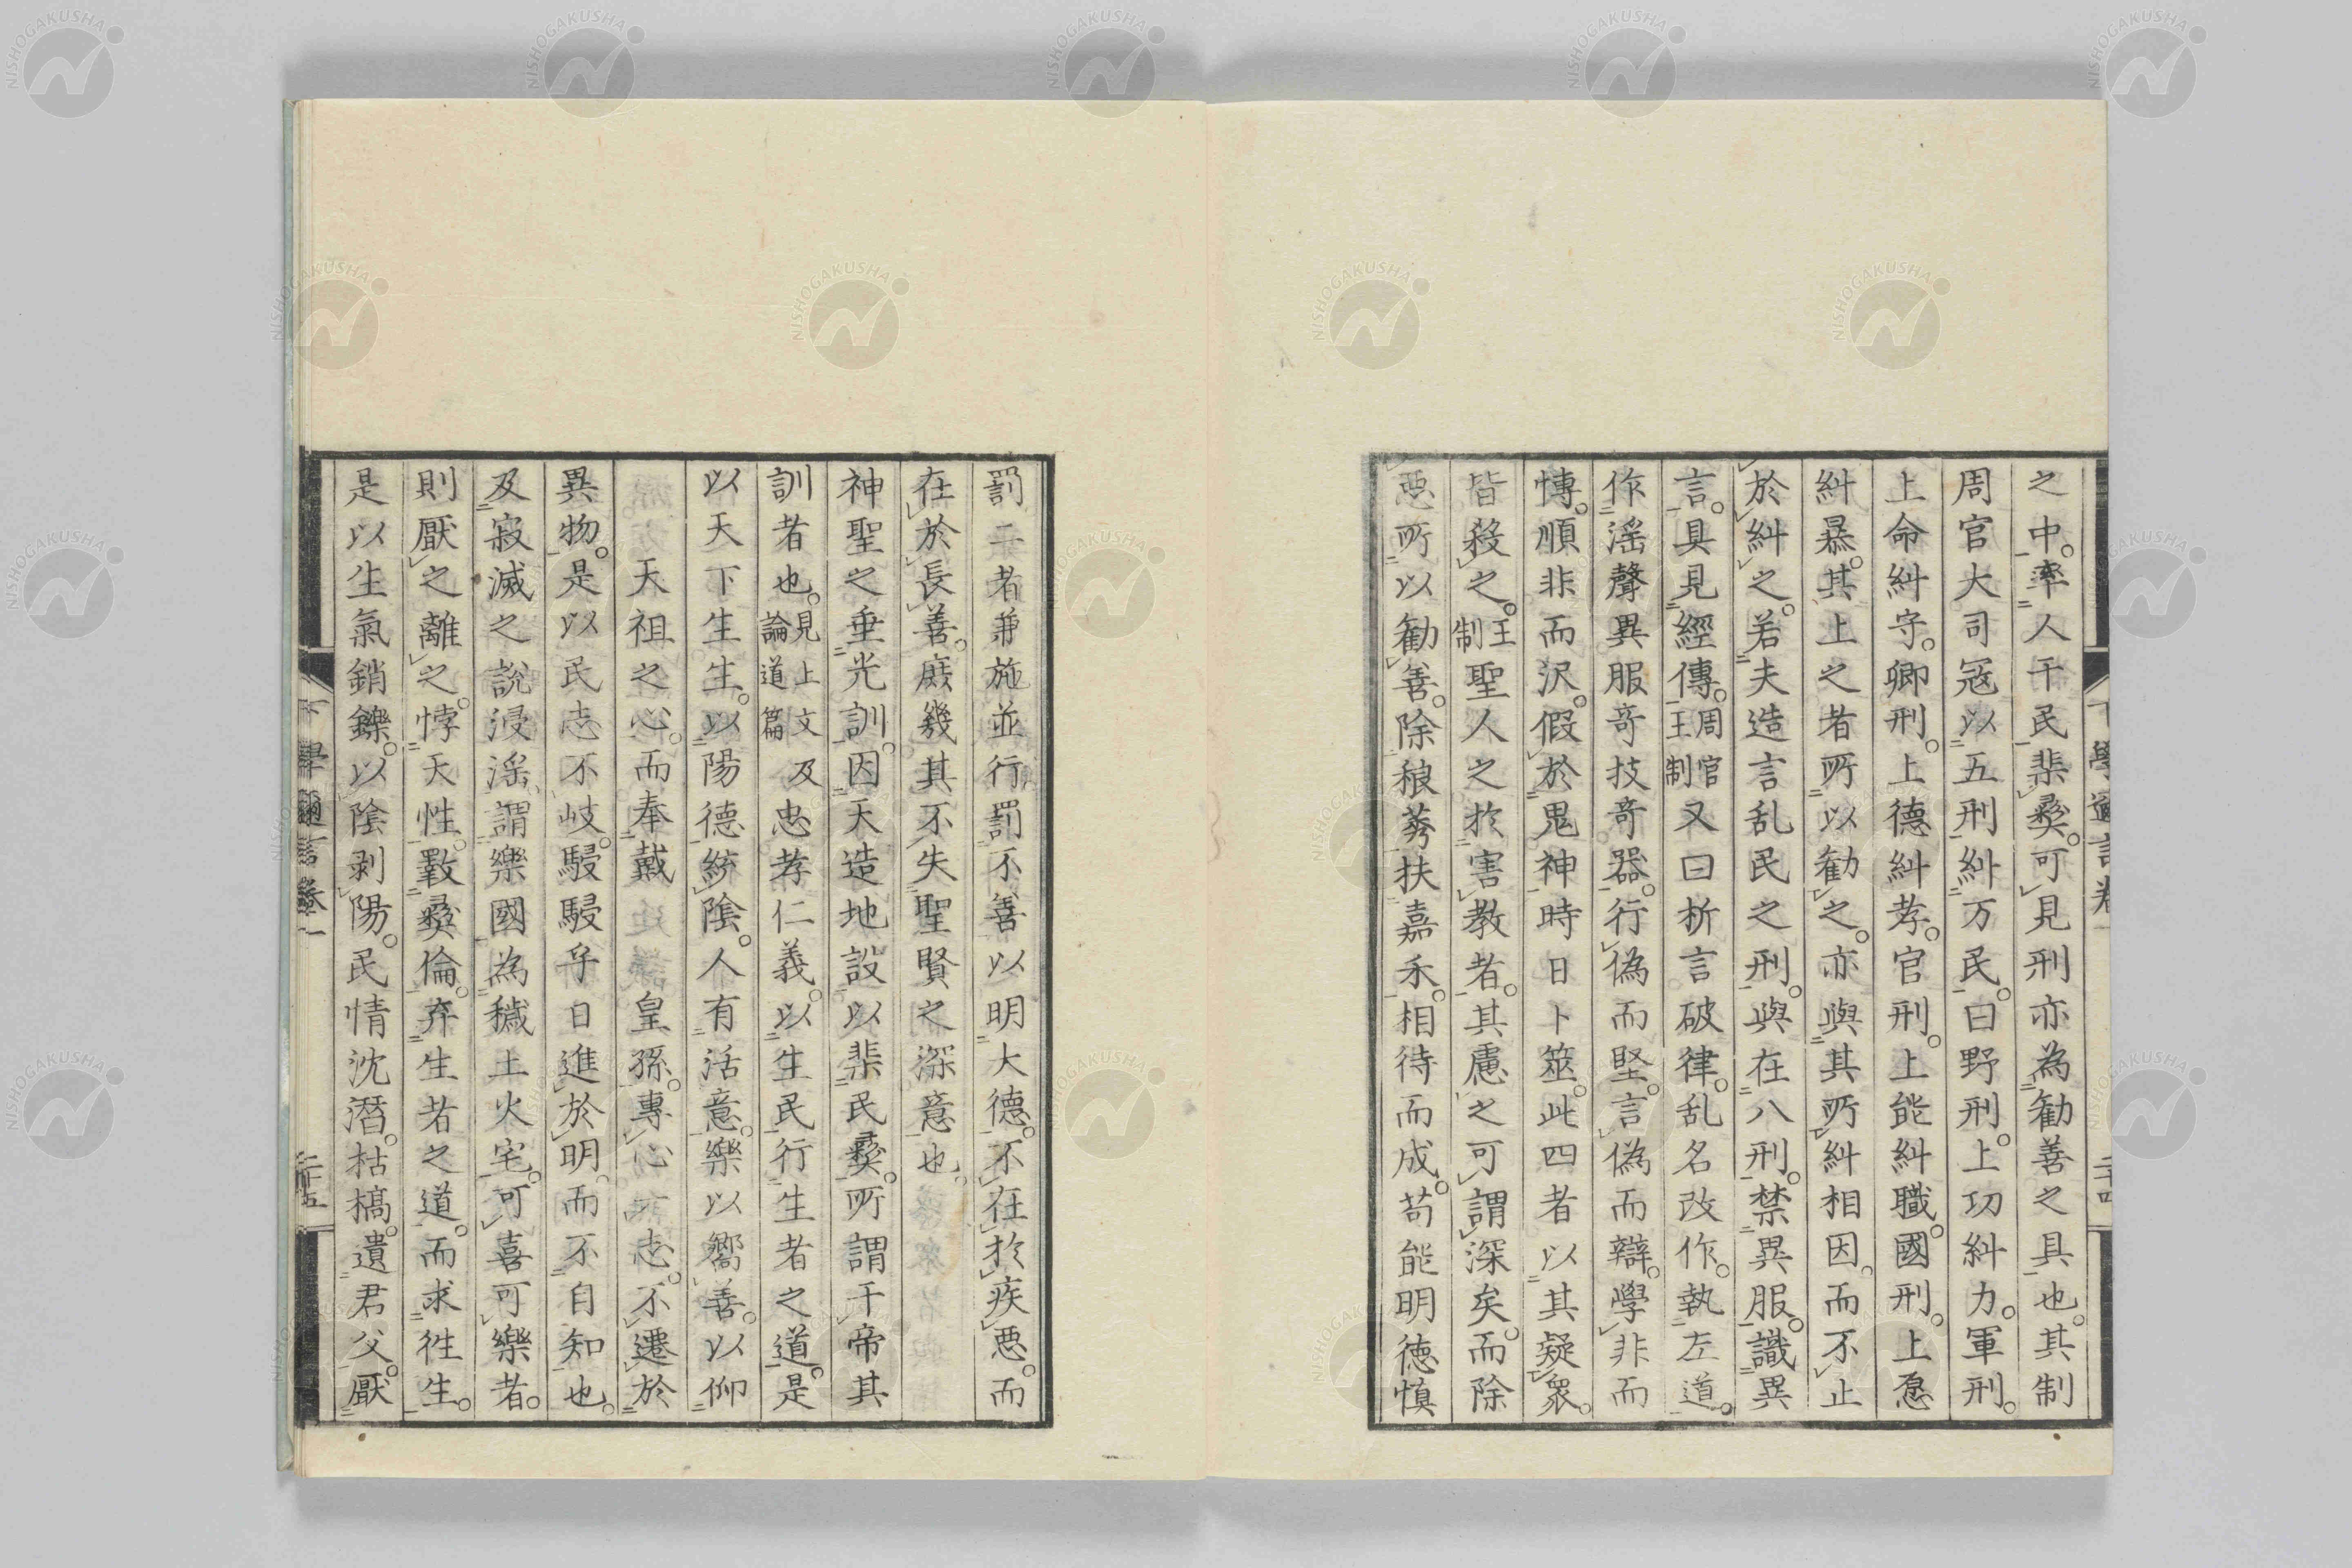 之中。率人干民棐彜。可見刑亦為勸善之具也。其制
周官大司寇以五刑糾万民。曰野刑。上功糾力。軍刑。
上命糾守。卿刑。上德糾孝。官刑。上能糾職。國刑。上愿
糾暴。其上之者所以勸之。亦與其所糾相因。而不止
於糾之。若夫造言乱民之刑。與在八刑。禁異服。識異
言。具見經傳。周官王制又曰析言破律。乱名改作。執左道。
作滛聲異服奇技奇器。行偽而堅。言偽而辯。學非而
博。順非而沢。假於鬼神時日卜筮。此四者以其疑衆。
皆殺之。王制聖人之於害教者。其慮之可謂深矣。而除
惡所以勸善。除稂莠扶嘉禾。相待而成。苟能明徳慎
罰。二者兼施並行罰不善以明大德。不在於疾惡。而
在於長善。庶幾其不失聖賢之深意也。
神聖之垂光訓。因天造地設。以棐民彜。所謂于帝其
訓者也。見上文論道篇及忠孝仁義。以生民行生者之道。是
以天下生生。以陽德統陰。人有活意。樂以嚮善。以仰
天祖之心。而奉戴
皇孫。專心志。不遷於
異物。是以民志不岐。駸駸乎日進於明。而不自知也。
及寂滅之說浸滛。謂樂國為穢土火宅。可喜可樂者。
則厭之離之。悖天性。斁彜倫。弃生者之道。而求徃生。
是以生氣銷鑠。以陰剥陽。民情沈潛。枯槁。遺君父。厭
下學邇言卷一
二十四
下學邇言卷一
二十五
NISHOGAKUSHA